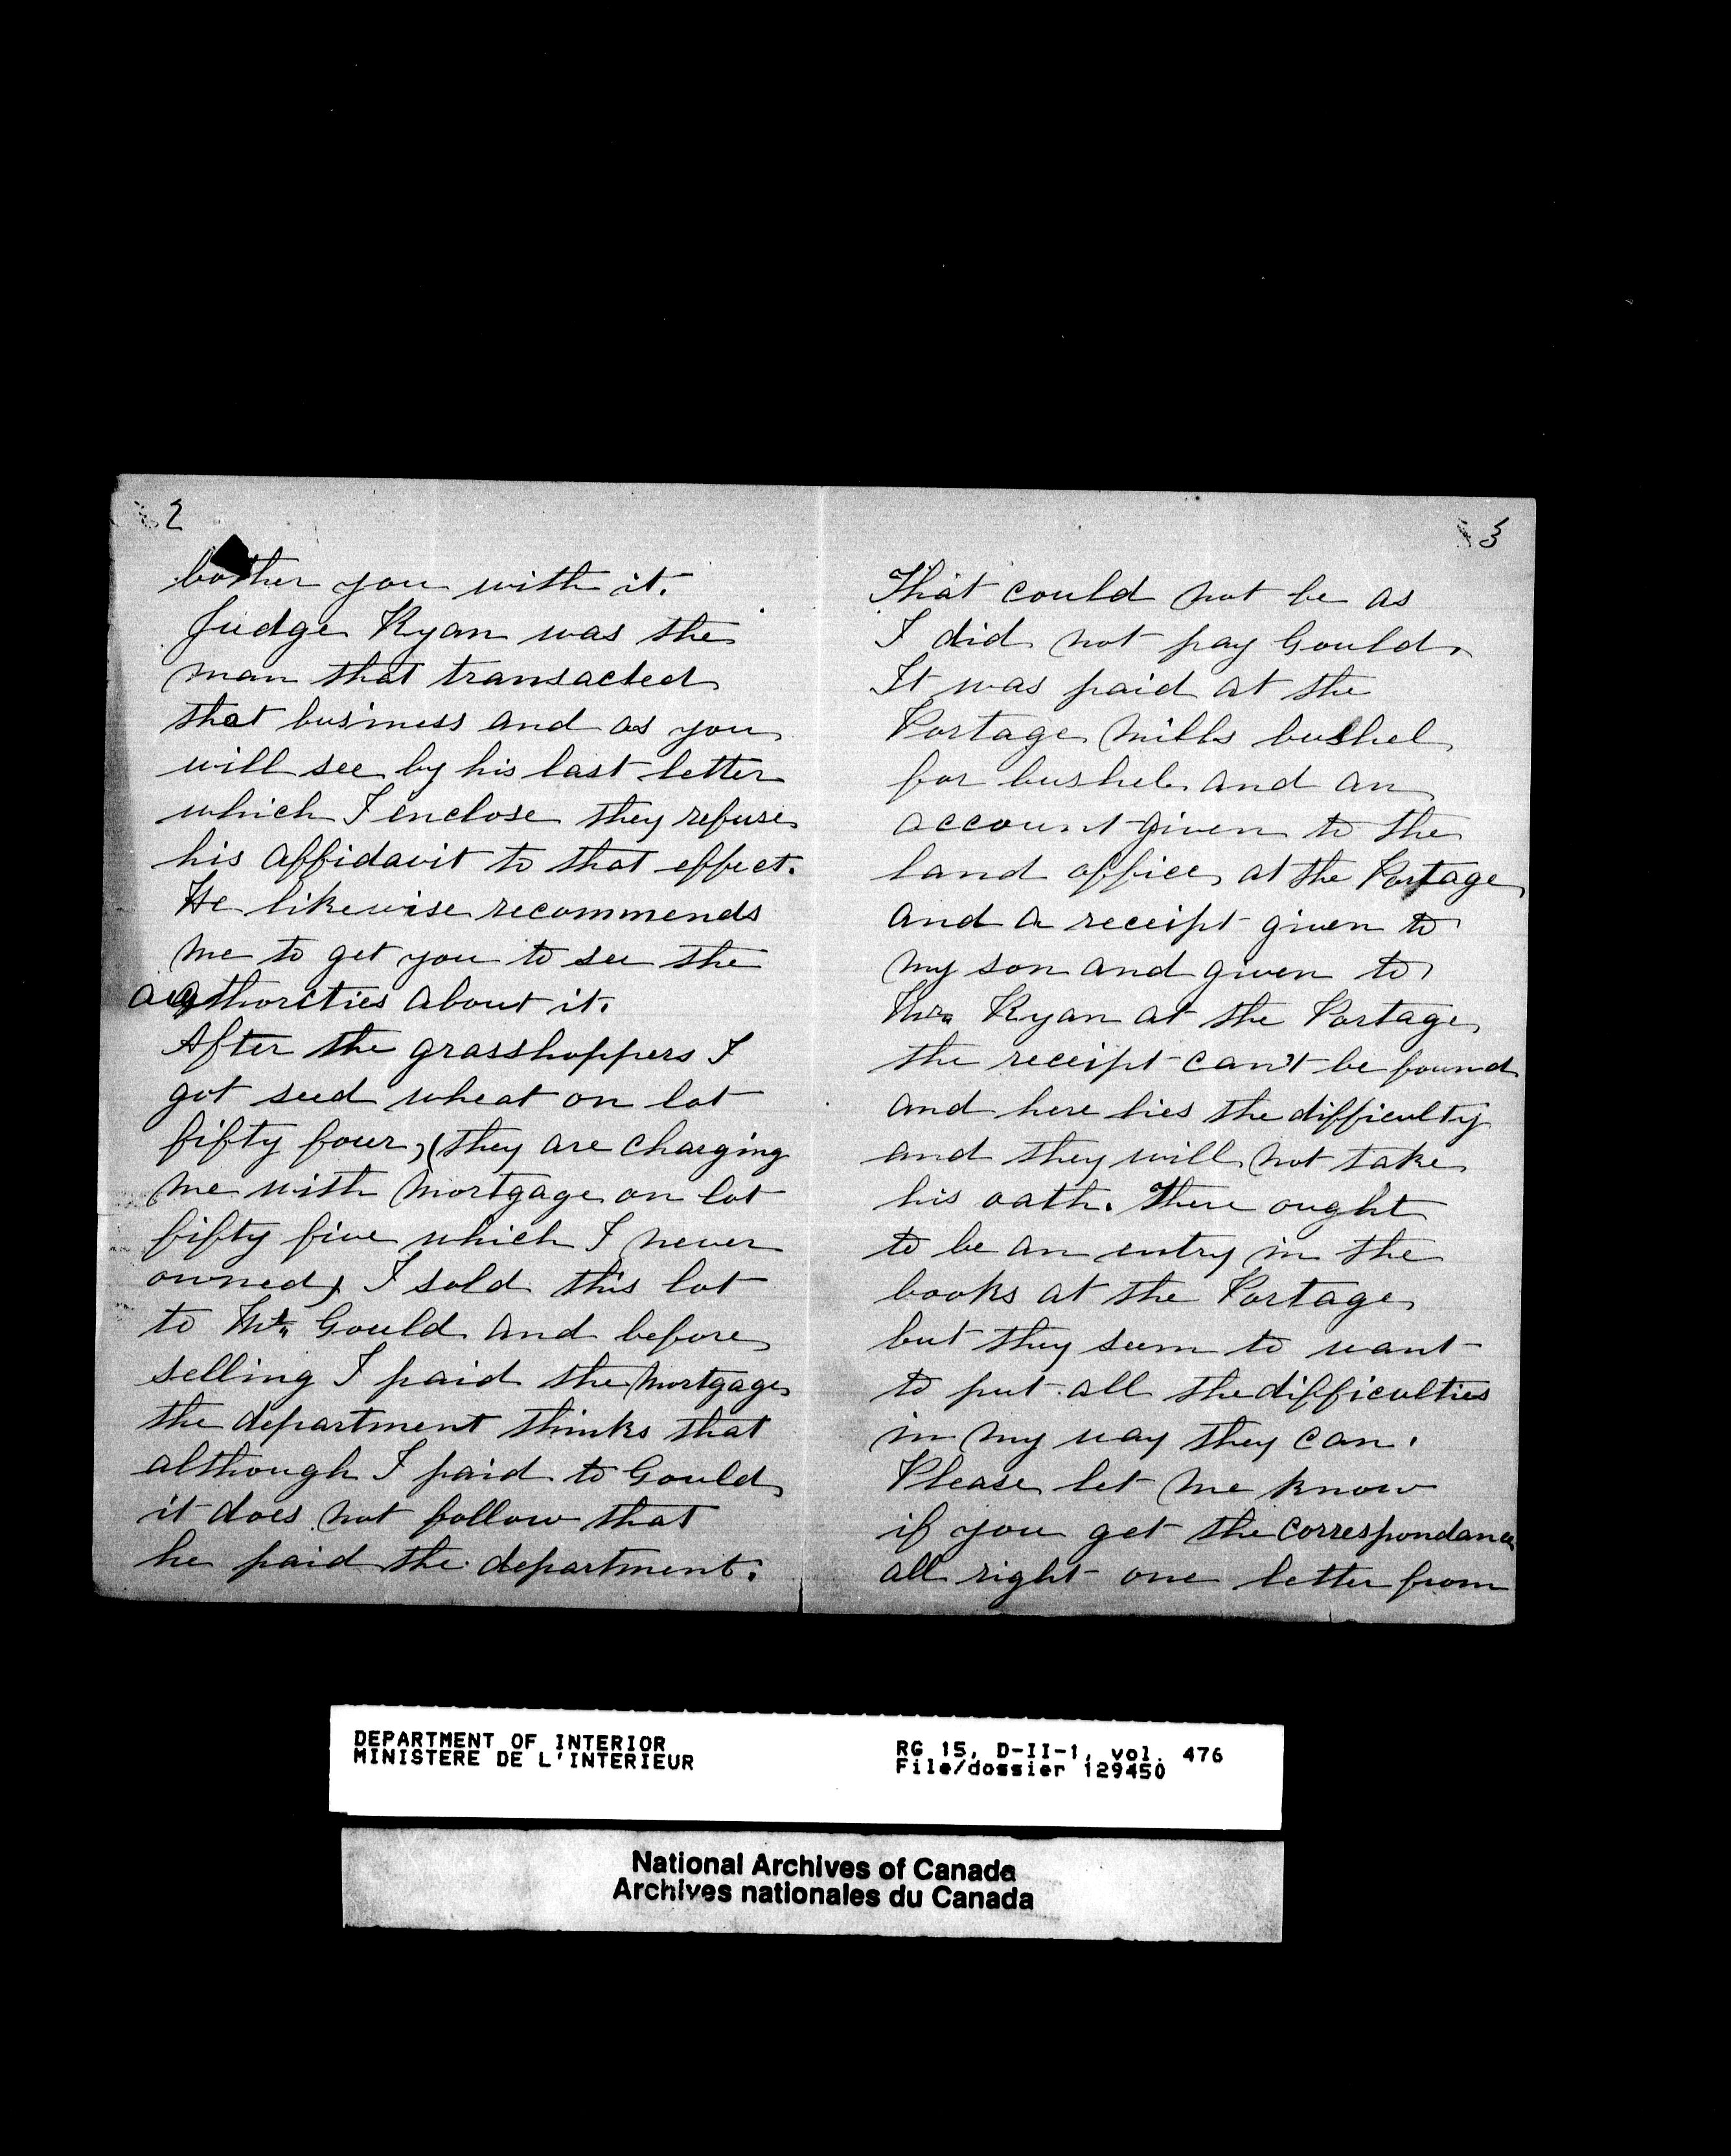 2
bother you with it.
Judge Ryan was the
man that transacted
that business and as you
will see by his last letter
which I enclose they refuse
his affidavit to that effect.
He likewise recommends
me to get you to see the
authorities about it.
After the grasshoppers I
got seed wheat on lot
fifty four, (they are charging
me with mortgage on lot
fifty five which I never
owned) I sold this lot
to Mr. Gould and before
selling I paid the mortgage
the department thinks that
although I paid to Gould
it does not follow that
he paid the department.
3
That could not be as
I did not pay Gould.
It was paid at the
Portage mills bushel
for bushel and an
account given to the
land office at the Portage
and a receipt given to
my son and given to
Mr. Ryan at the Portage
the receipt can't be found
and here lies the difficulty
and they will not take
his oath. There ought
to be an entry in the
books at the Portage
but they seem to want
to put all the difficulties
in my way they can.
Please let me know
if you get the correspondance
all right one letter from
DEPARTMENT OF INTERIOR
MINISTERE DE L'INTERIEUR
RG 15, D-II-1, vol. 476
File/dossier 129450
National Archives of Canada
Archives nationales du Canada